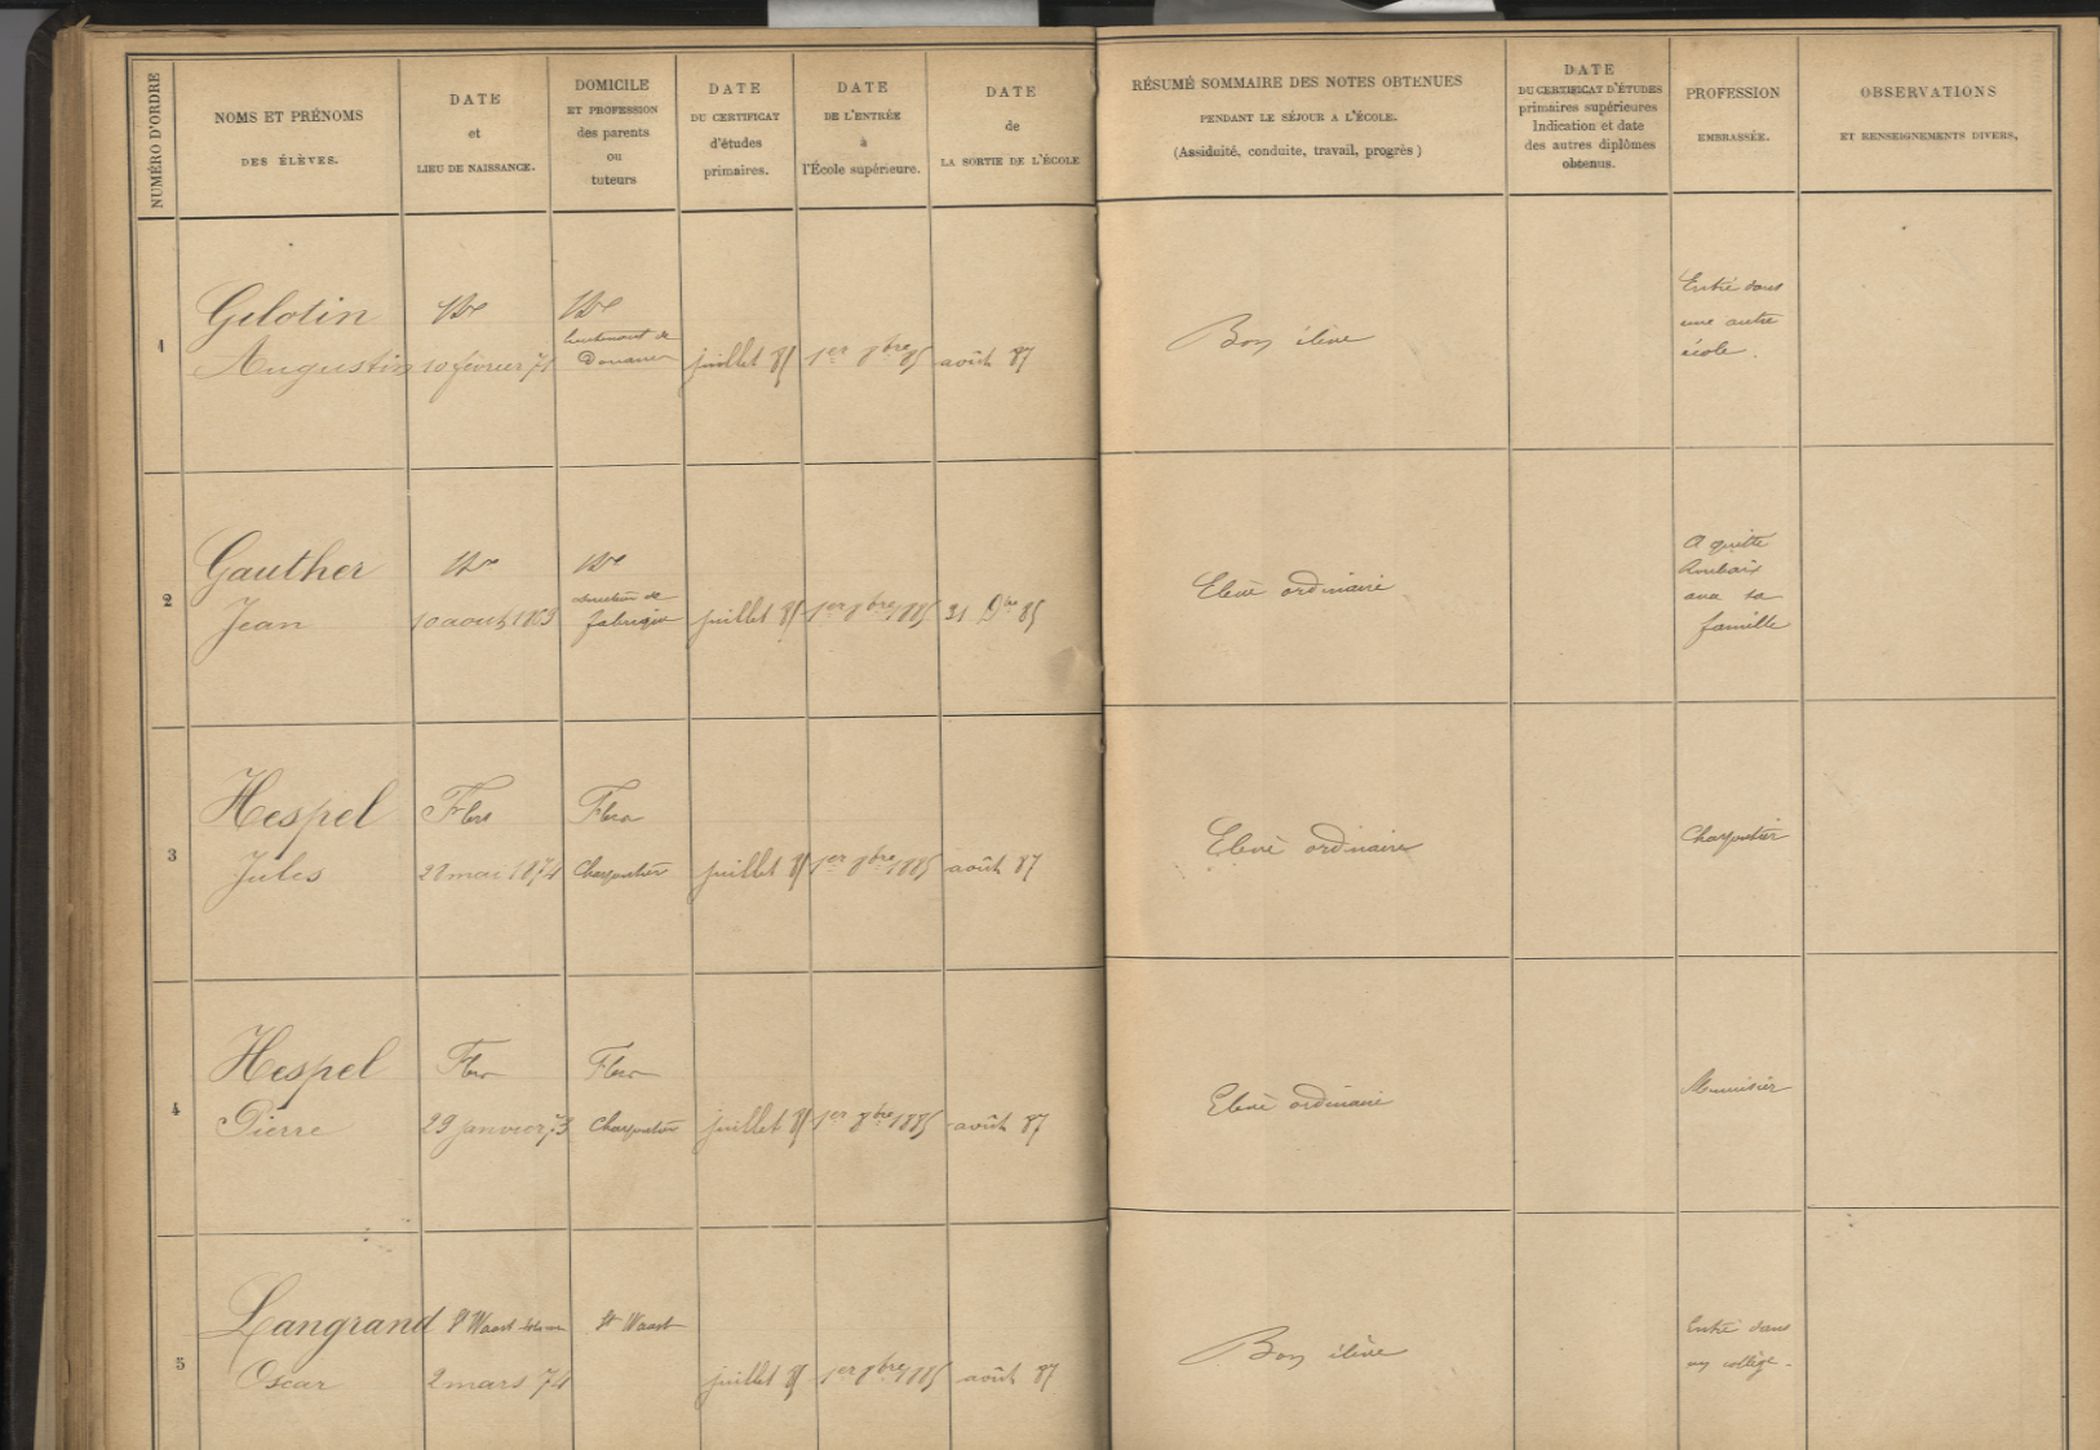 NUMÉRO D'ORDRE
NOMS ET PRÉNOMS
DES ÉLÈVES.
DATE
et
LIEU DE NAISSANCE.
DOMICILE
ET PROFESSION
des parents
ou
tuteurs
DATE
DU CERTIFICAT
d'études
primaires.
DATE
DE L'ENTRÉE
à
l'École supérieure.
DATE
de
LA SORTIE DE L'ÉCOLE
RÉSUMÉ SOMMAIRE DES NOTES OBTENUES
PENDANT LE SÉJOUR A L'ÉCOLE.
(Assiduité, conduite, travail, progrès)
DATE
DU CERTIFICAT D'ÉTUDES
primaires supérieures
Indication et date
des autres diplômes
obtenus.
PROFESSION
EMBRASSÉE.
OBSERVATIONS
ET RENSEIGNEMENTS DIVERS,
1
Gelotin
Augustin
10 février 71
lieutenant de
Douanes
juillet 85
1er 8bre 85
août 87
Bon élève
Entré dans
une autre
école.
2
Gauther
Jean
10 aout
fabrique
juillet 85
1er 8bre 1885
31 Dbre 85
Elève ordinaire
A quitté
Roubaix
avec sa
famille
3
Hespel
Jules
Flers
28 mai 1874
Flers
Charpentier
juillet 85
1er 8bre 1885
août 87
Elève ordinaire
Charpentier
4
Hespel
Pierre
Flers
29 janvier 73
Flers
Charpentier
juillet 85
1er 8bre 1885
août 87
Elève ordinaire
Menuisier
5
Langrand
Oscar
St Waast
2 mars 74
St Waast
juillet 85
1er 8bre 1885
août 87
Bon élève
Entré dans
un collège.